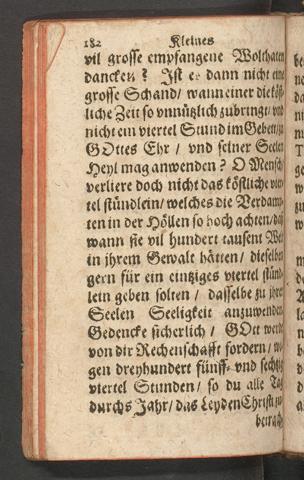 182 Kleines
vil grosse empfangene Wolthaten
dancken? Ist es dann nicht eine
grosse Schand / wann einer die köst-
liche Zeit so vnnützlich zubringt / vnd
nicht ein viertel Stund im Gebett / zu
GOttes Ehr / vnd seiner Seelen
Heyl mag anwenden? O Mensch
verliere doch nicht das köstliche vier-
tel stündlein / welches die Verdamp-
ten in der Höllen so hoch achten / daß
wann sie vil hundert tausent Welt
in jhrem Gewalt hätten / dieselben
gern für ein eintziges viertel stünd-
lein geben solten / dasselbe zu jhrer
Seelen Seeligkeit anzuwenden
Gedencke sicherlich / GOtt werde
von dir Rechenschafft fordern / we-
gen dreyhundert fünff- vnd sechtzig
viertel Stunden / so du alle Tag
durchs Jahr / das Leyden Christi zu
betrach-